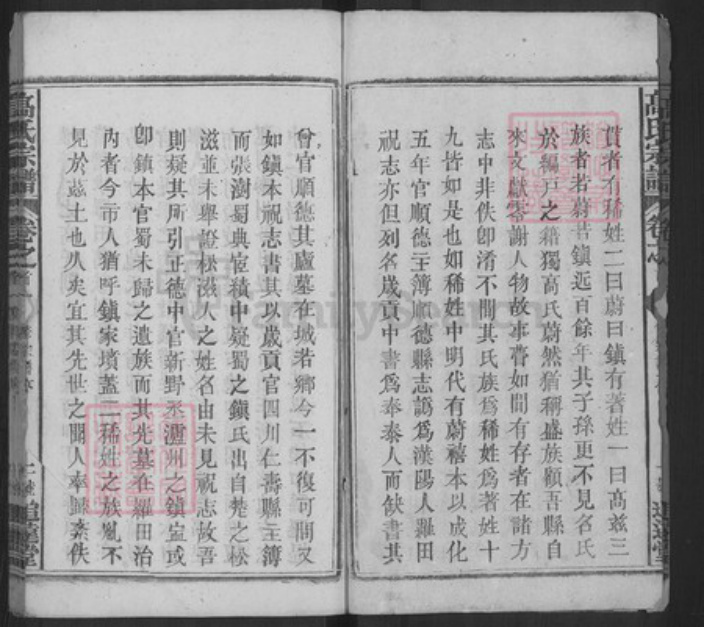 貫者有稀姓二曰蔚曰鎮有著姓一曰高茲三
族者若蔚若鎮近百餘年其子孫更不見名氏
於編戶之籍獨高氏蔚然猶稱盛族顧吾縣自
來文獻零謝人物故事嘗如間有存者在諸方
志中非佚卽淆不間其氏族爲稀姓爲著姓十
九皆如是也如稀姓中明代有蔚禧本以成化
五年官順德主簿順德縣志譌爲漢陽人羅田
祝志亦但列名歲貢中書爲奉泰人而缺書其
曾官順德其廬墓在城若鄉今一不復可問又
如鎮本祝志書其以歲貢官四川仁壽縣主簿
而張澍蜀典宦積中疑蜀之鎮氏出自楚之松
滋並未舉證松滋人之姓名由未見祝志故吾
則疑其所引正德中官新野丞瀘州之鎮寍或
卽鎮本官蜀未歸之遺族而其先墓在羅田治
內者今市人猶呼鎮家墳蓋二稀姓之族胤不
見於茲土也久矣宜其先世之聞人奉歸紊佚
高氏宗譜
卷之首
追遠堂